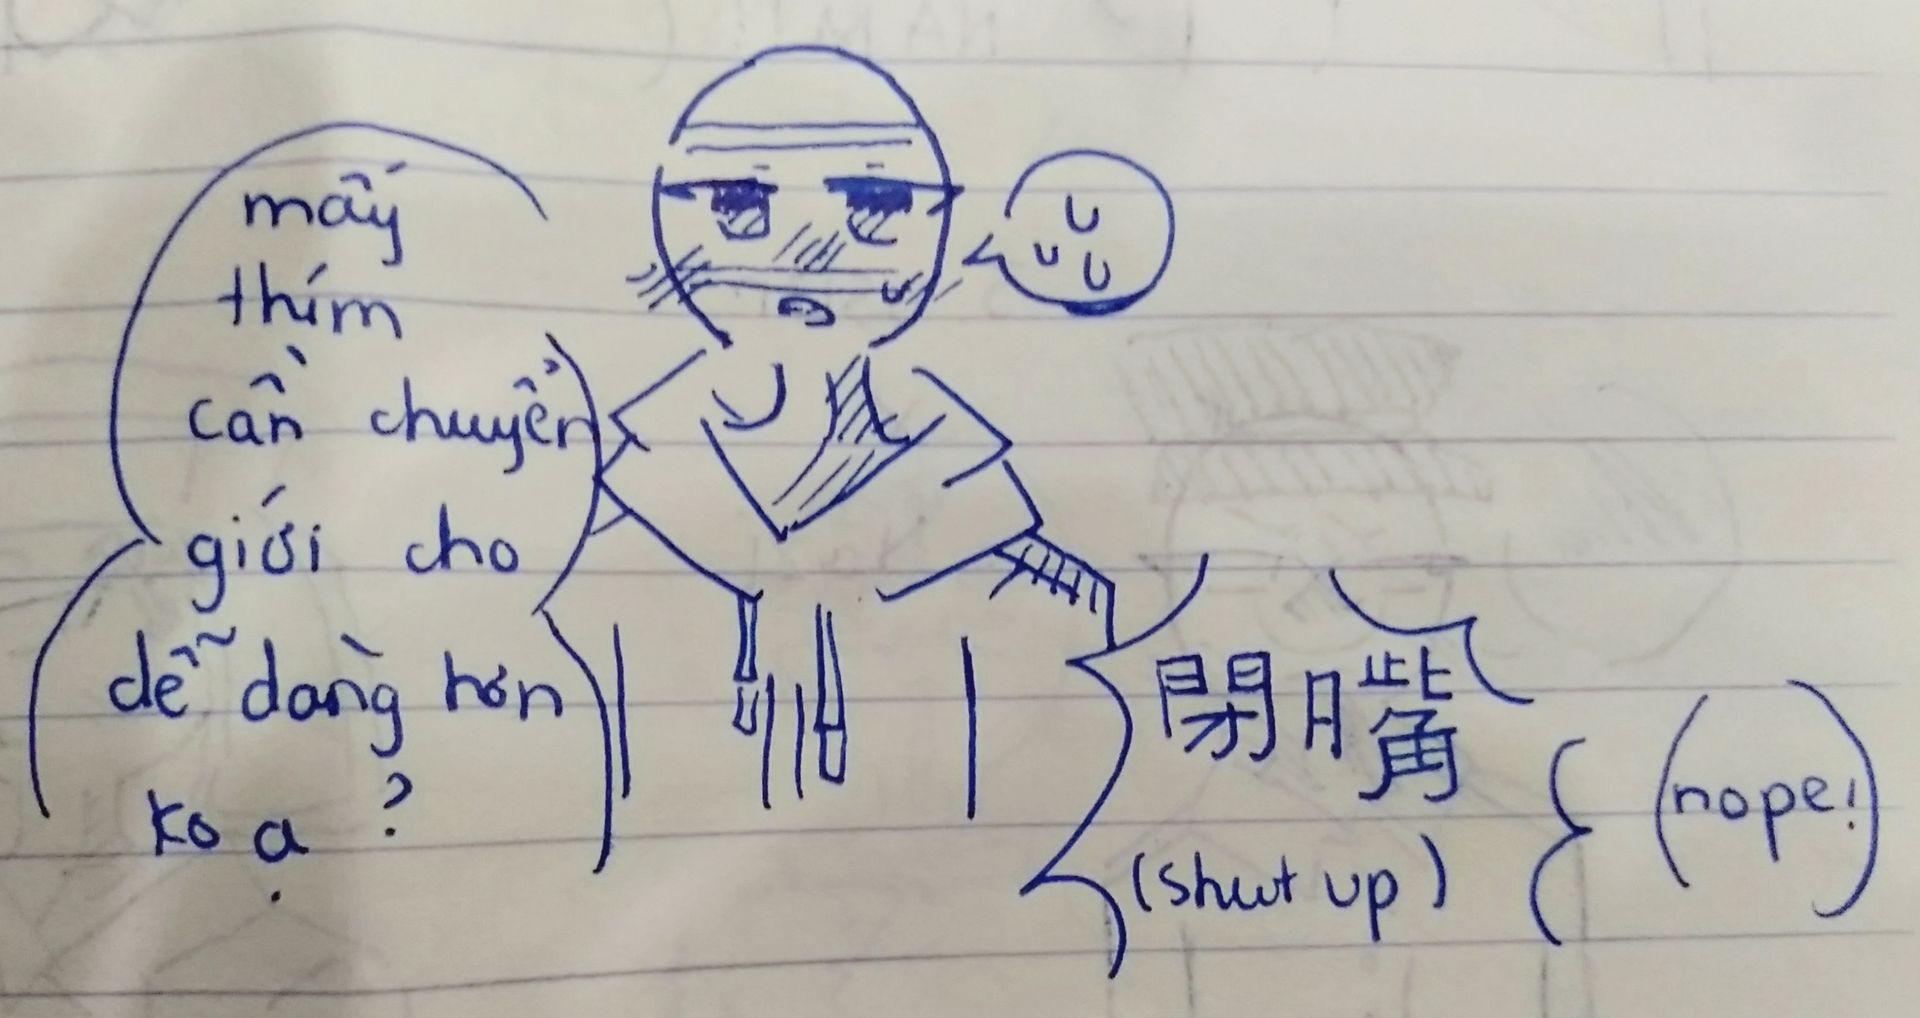 mấy
thím
cần chuyển
giới cho
dễ dàng hơn
ko ạ?
閉嘴
(shut up)
(nope!)